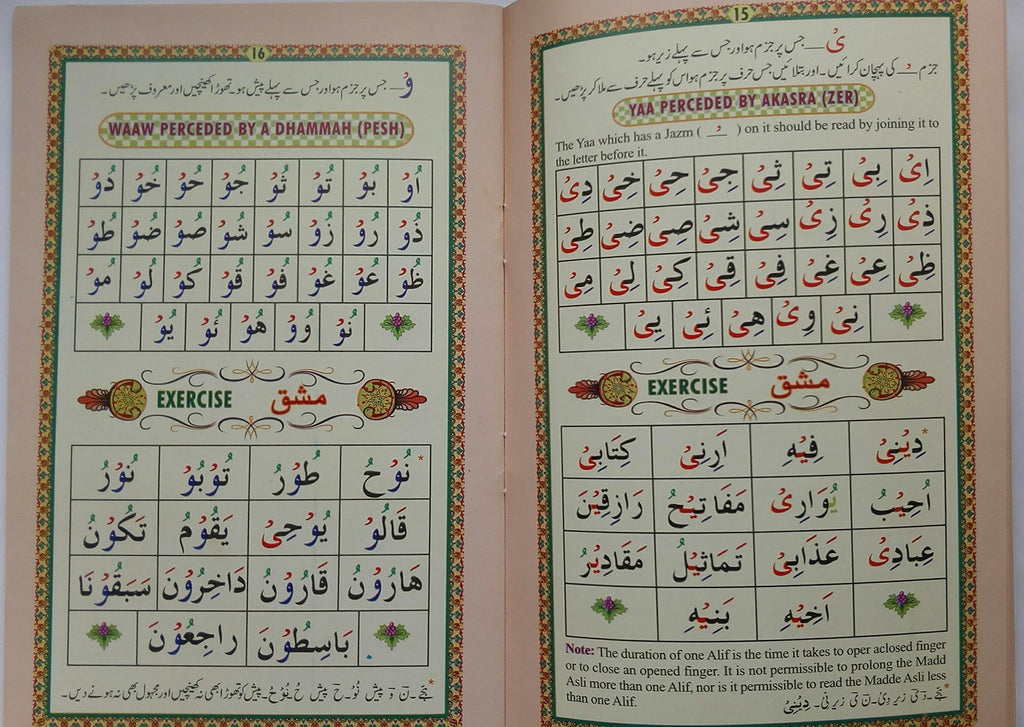 15
یْ ــــ جس پر جزم ہو اور جس سے پہلے زیر ہو۔
جزم ــْـ کی پہچان کرائیں۔ اور بتلائیں جس حرف پر جزم ہو اس کو پہلے حرف سے ملا کر پڑھیں۔
YAA PERCEDED BY AKASRA (ZER)
The Yaa which has a Jazm ( ــْـ ) on it should be read by joining it to
the letter before it.
اِیْ بِیْ تِیْ ثِیْ جِیْ حِیْ خِیْ دِیْ
ذِیْ رِیْ زِیْ سِیْ شِیْ صِیْ ضِیْ طِیْ
ظِیْ عِیْ غِیْ فِیْ قِیْ کِیْ لِیْ مِیْ
نِیْ وِیْ هِیْ ئِیْ یِیْ
EXERCISE مشق
دِیْنِیْ* فِیْهِ اَرِنِیْ کِتَابِیْ
اُجِیْبُ یُوَارِیْ مَفَاتِیْحُ رَازِقِیْنَ
عِبَادِیْ عَذَابِیْ تَمَاثِیْلُ مَقَادِیْرُ
اَخِیْهِ بَنِیْهِ
Note: The duration of one Alif is the time it takes to oper aclosed finger
or to close an opened finger. It is not permissible to prolong the Madd
Asli more than one Alif, nor is it permissible to read the Madde Asli less
than one Alif.
16
وْ ــــ جس پر جزم ہو اور جس سے پہلے پیش ہو۔ تھوڑا کھینچیں اور معروف پڑھیں۔
WAAW PERCEDED BY A DHAMMAH (PESH)
اُوْ بُوْ تُوْ ثُوْ جُوْ حُوْ خُوْ دُوْ
ذُوْ رُوْ زُوْ سُوْ شُوْ صُوْ ضُوْ طُوْ
ظُوْ عُوْ غُوْ فُوْ قُوْ کُوْ لُوْ مُوْ
نُوْ وُوْ هُوْ ئُوْ یُوْ
EXERCISE مشق
نُوْحُ* طُوْرُ تُوْبُوْ نُوْرُ
قَالُوْ یُوْحِیْ یَقُوْمُ تَکُوْنُ
هَارُوْنُ قَارُوْنُ دَاخِرُوْنَ سَبَقُوْنَا
بَاسِطُوْنَ رَاجِعُوْنَ